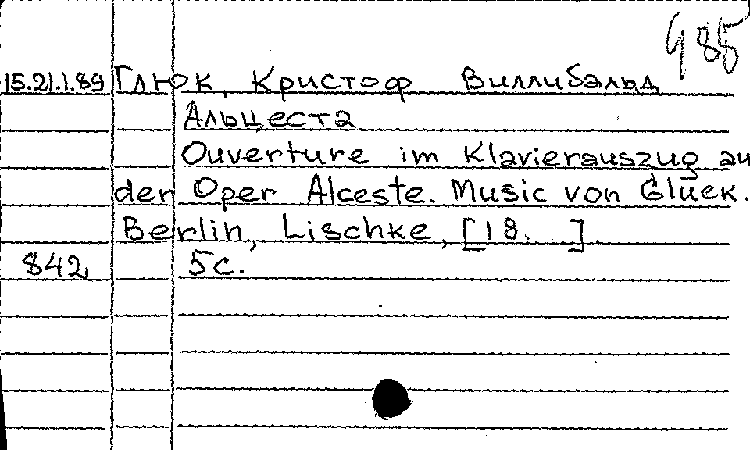 985
15.21.1.89 Глюк, Кристоф Виллибальд
Альцеста
Ouverture im Klavierauszug au
der Oper Alceste. Music von Gluck.
Berlin, Lischke, [18. ]
842 5с.